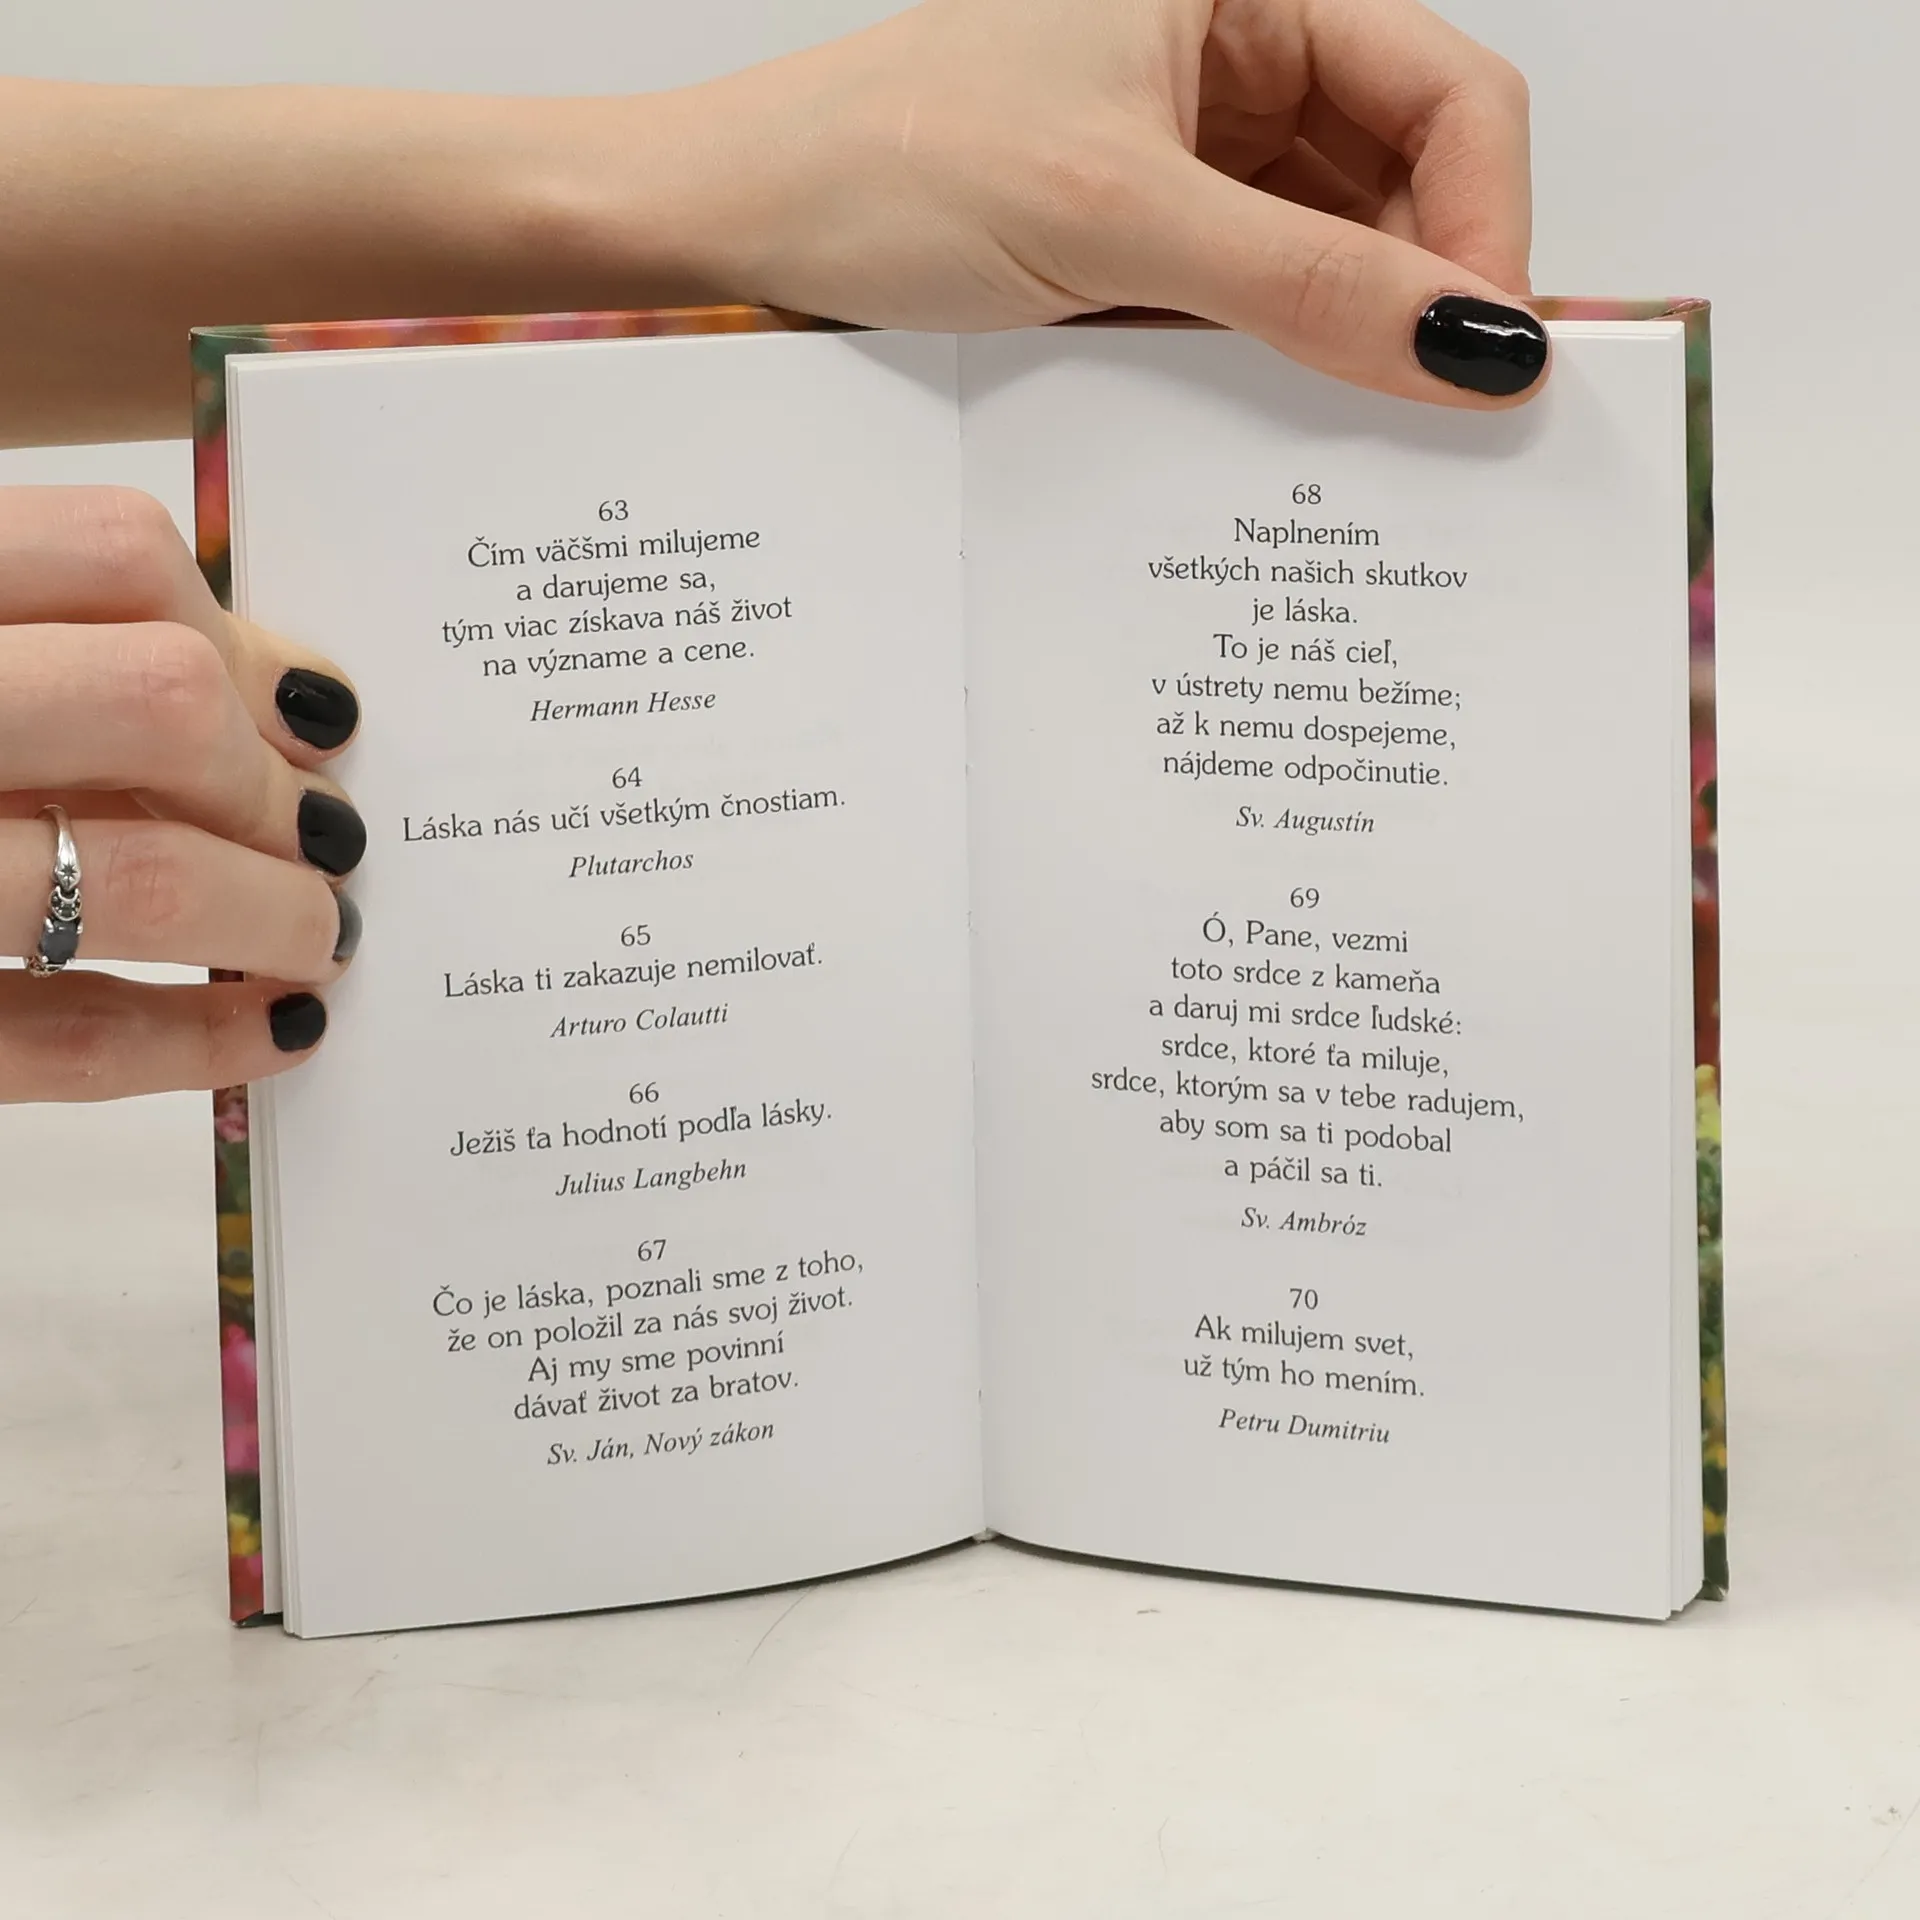 63
Čím väčšmi milujeme
a darujeme sa,
tým viac získava náš život
na význame a cene.
Hermann Hesse
64
Láska nás učí všetkým čnostiam.
Plutarchos
65
Láska ti zakazuje nemilovať.
Arturo Colautti
66
Ježiš ťa hodnotí podľa lásky.
Julius Langbehn
67
Čo je láska, poznali sme z toho,
že on položil za nás svoj život.
Aj my sme povinní
dávať život za bratov.
Sv. Ján, Nový zákon
68
Naplnením
všetkých našich skutkov
je láska.
To je náš cieľ,
v ústrety nemu bežíme;
až k nemu dospejeme,
nájdeme odpočinutie.
Sv. Augustín
69
Ó, Pane, vezmi
toto srdce z kameňa
a daruj mi srdce ľudské:
srdce, ktoré ťa miluje,
srdce, ktorým sa v tebe radujem,
aby som sa ti podobal
a páčil sa ti.
Sv. Ambróz
70
Ak milujem svet,
už tým ho mením.
Petru Dumitriu